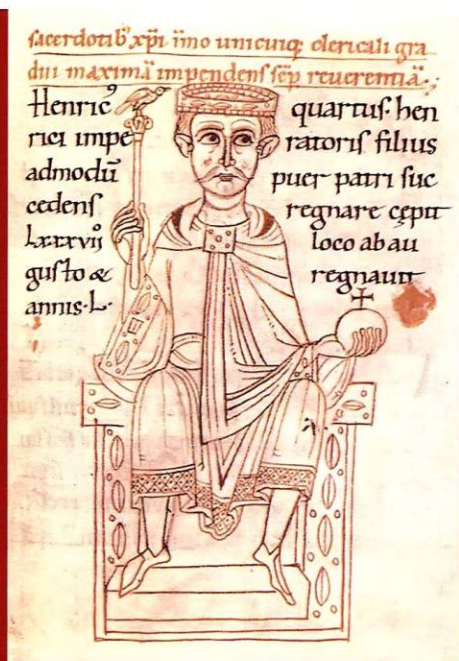 sacerdotib⁹ xp̄i īmo unicuiq; clericali gra
dui maximā impendens sēp reverentiā.
Henric⁹ quartus. hen
rici impe ratoris filius
admodū puer patri suc
cedens regnare cępit
Lxxxvii loco ab au
gusto & regnavit
annis. L.